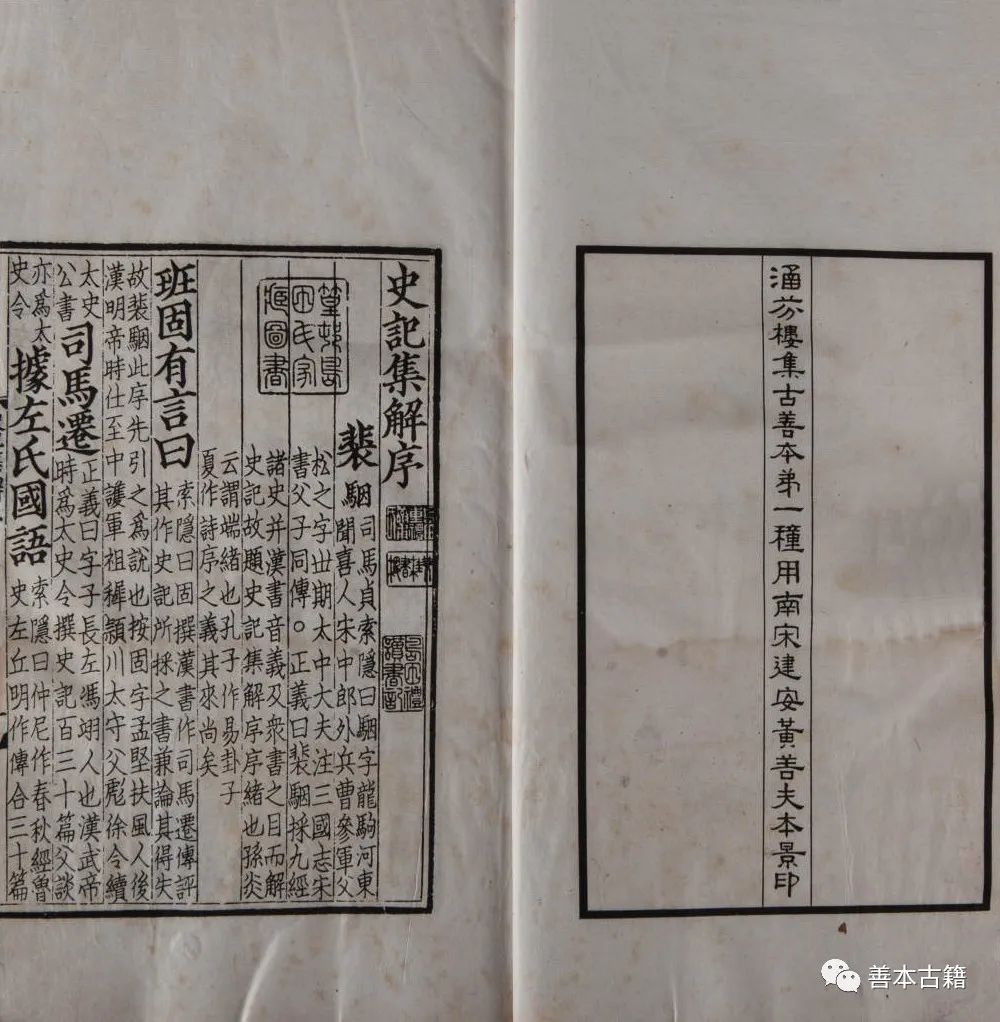 涵芬樓集古善本弟一種用南宋建安黃善夫本景印
史記集解序
篁邨島
田氏家
藏圖書
裴駰
司馬貞索隱曰駰字龍駒河東
聞喜人宋中郎外兵曹參軍父
松之字丗期太中大夫注三國志宋
書父子同傳。正義曰裴駰採九經
諸史并漢書音義及衆書之目而解
史記故題史記集解序序緒也孫炎
云謂端緒也孔子作易卦子
夏作詩序之義其來尚矣
班固有言曰
索隱曰固撰漢書作司馬遷傳評
其作史記所採之書兼論其得失
故裴駰此序先引之爲說也按固字孟堅扶風人後
漢明帝時仕至中護軍祖穉潁川太守父彪徐令續
太史
公書
司馬遷
正義曰字子長左馮翊人也漢武帝
時爲太史令撰史記百三十篇父談
亦爲太
史令
據左氏國語
索隱曰仲尼作春秋經魯
史左丘明作傳合三十篇
善本古籍